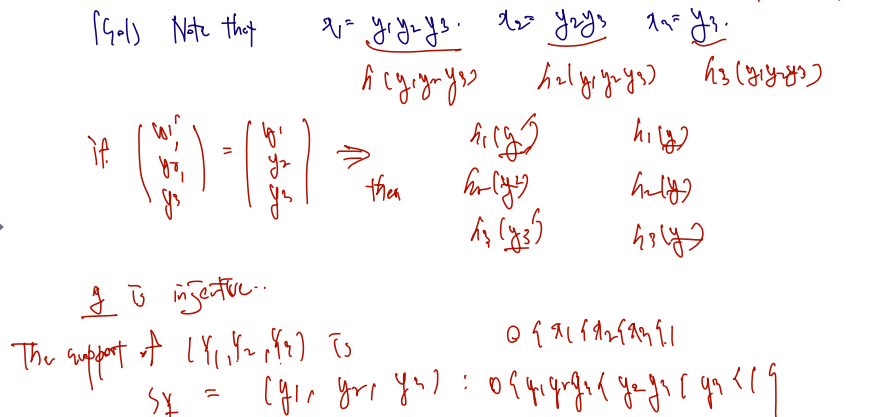 (Sol) Note that x₁ = y₁y₂y₃. x₂ = y₂y₃ x₃ = y₃.
h(y₁y₂y₃) h₂(y₁y₂y₃) h₃(y₁y₂y₃)
if (y₁', y₂', y₃) = (y₁ y₂ y₃) ⇒ then
h₁(y') h₁(y)
h₂(y') h₂(y)
h₃(y₃') h₃(y)
g is injective..
The support of (Y₁, Y₂, Y₃) is 0 < x₁ < x₂ < x₃ < 1
S_Y = (y₁, y₂, y₃) : 0 < y₁y₂y₃ < y₂y₃ < y₃ < 1 }